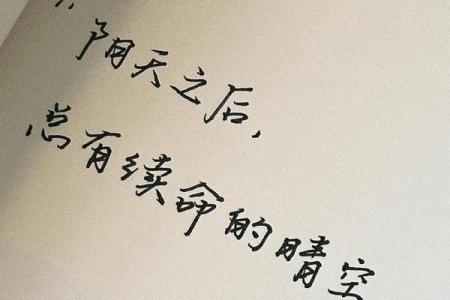 阴天之后,
总有续命的晴空